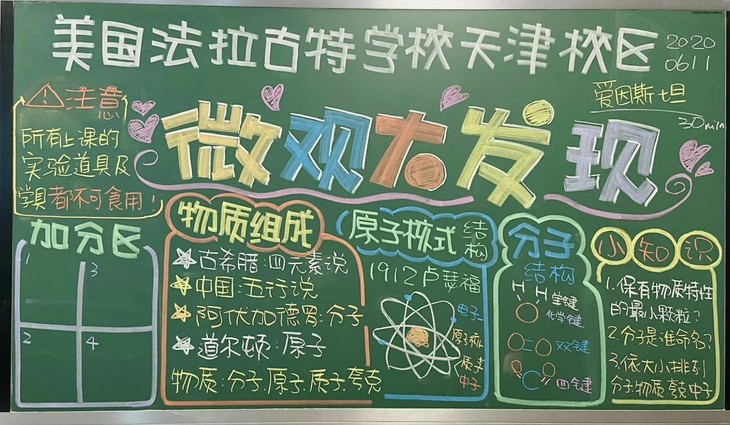 美国法拉古特学校天津校区
2020
0611
爱因斯坦
30min
微观大发现
注意
所有上课的
实验道具及
学具都不可食用!
加分区
1
3
2
4
物质组成
古希腊:四元素说
中国:五行说
阿伏加德罗:分子
道尔顿:原子
物质:分子.原子.质子.夸克
原子核式
结构
1912卢瑟福
电子
原子核
质子
中子
分子
结构
H H
化学键
双键
小知识
1.保有物质特性
的最小颗粒?
2.分子是谁命名?
3.依大小排列
分子物质夸克中子